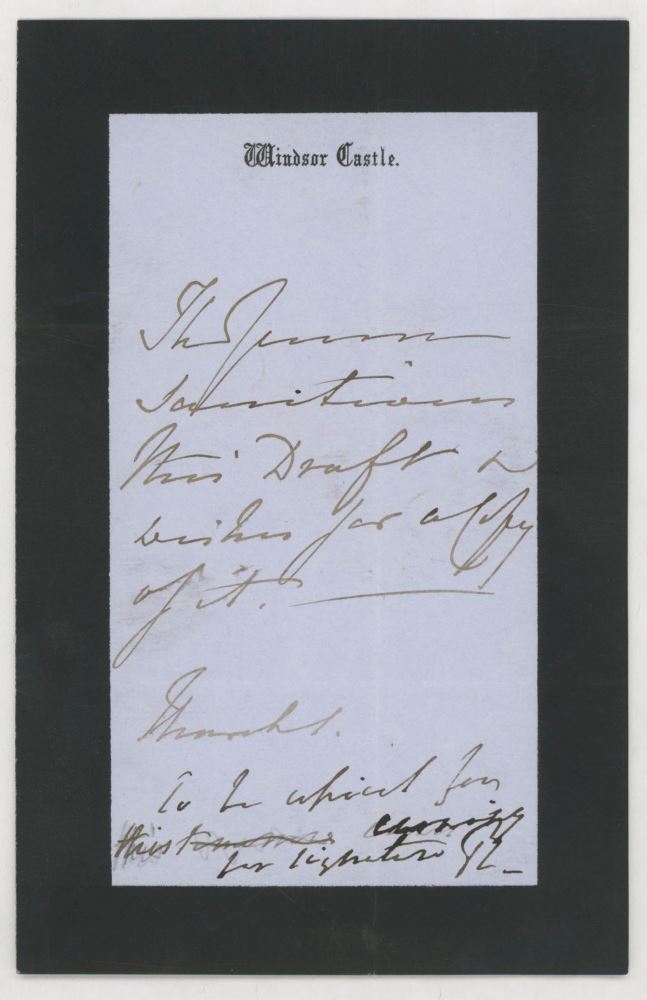 Windsor Castle.
The Queen
sanctions
this Draft &
wishes for a copy
of it.
March 1.
To be copied for
this evening
for signature